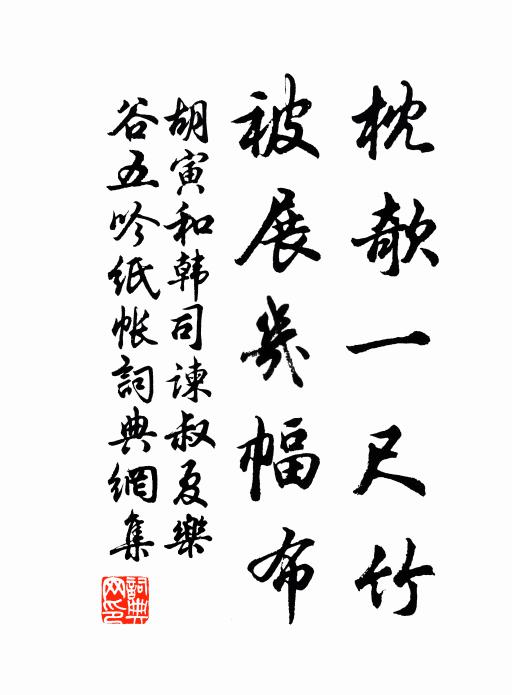 枕欹一尺竹
被展幾幅布
胡寅和韩司谏叔夏樂
谷五吟纸帐詞典網集
詞典網印